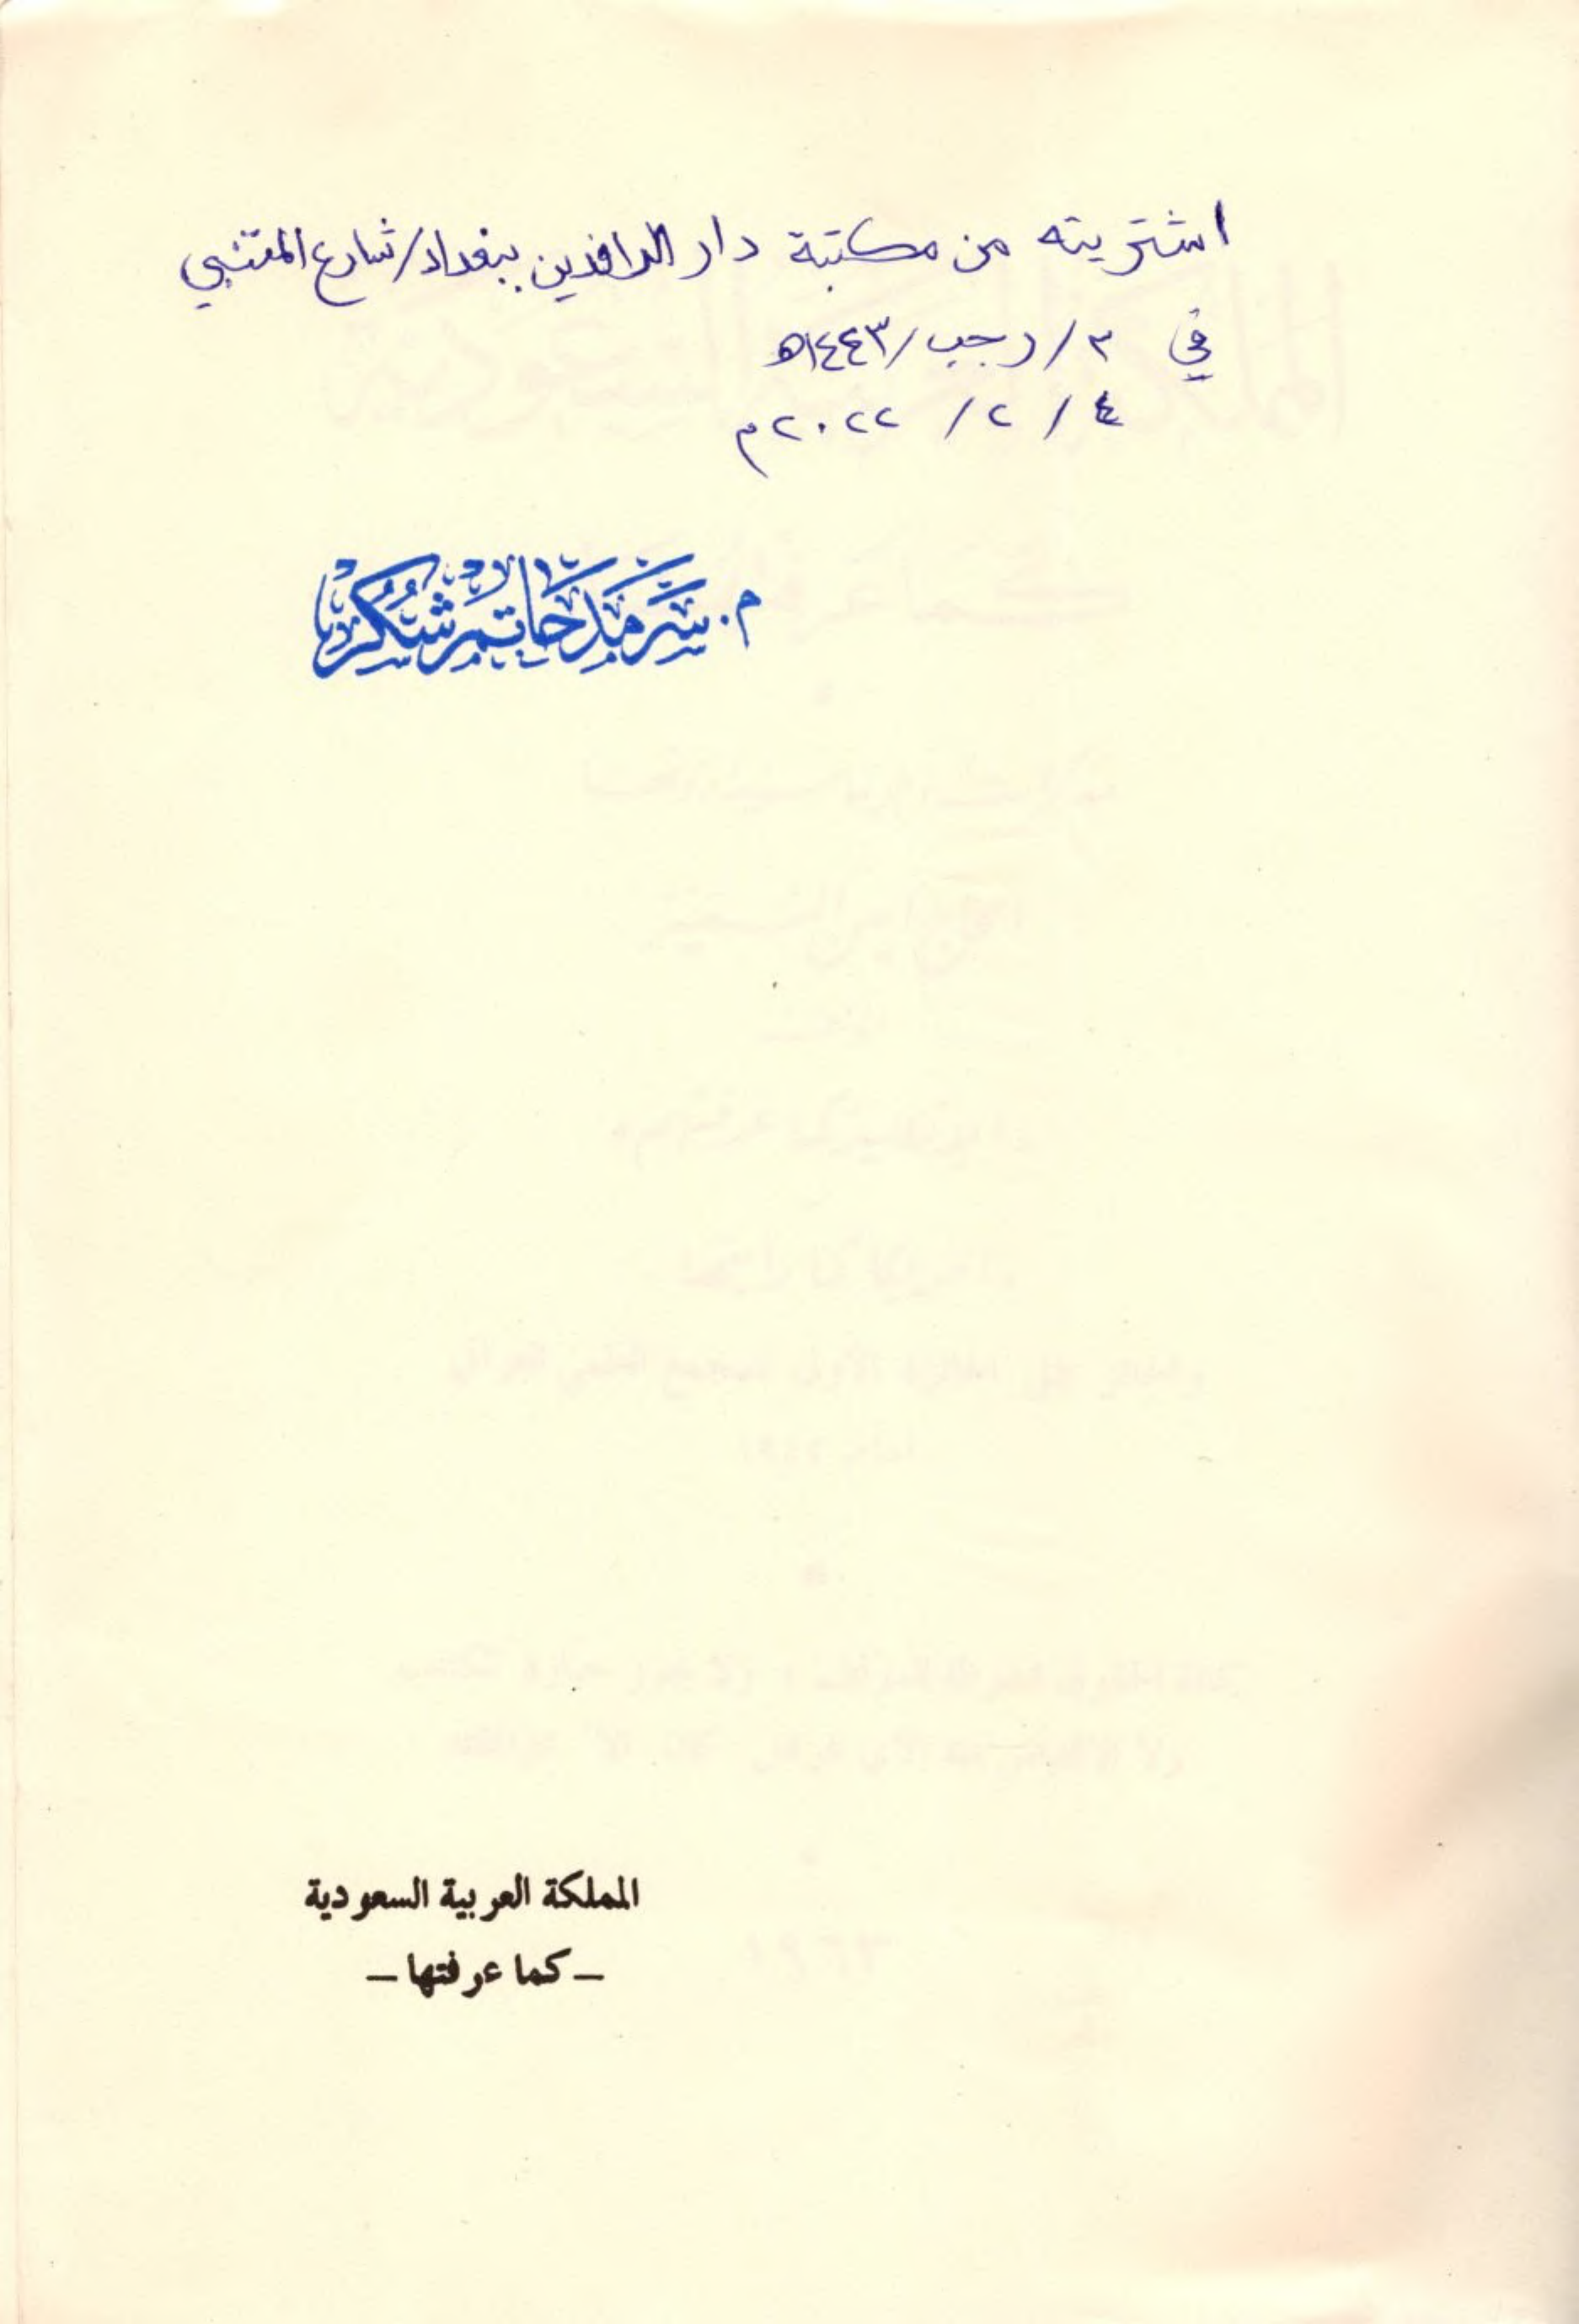 اشتريته من مكتبة دار الرافدين ببغداد/شارع المتنبي
في ٣/رجب/١٤٤٣هـ
٤/٢/٢٠٢٢م
م. سَرْمَدْ حَاتِمْ شُكُرْ
المملكة العربية السعودية
- كما عرفتها -